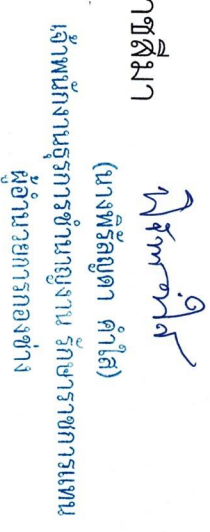 าชสีมา
(นางพิรัลญดา คำใส)
เจ้าพนักงานธุรการชำนาญงาน รักษาราชการแทน
ผู้อำนวยการกองช่าง